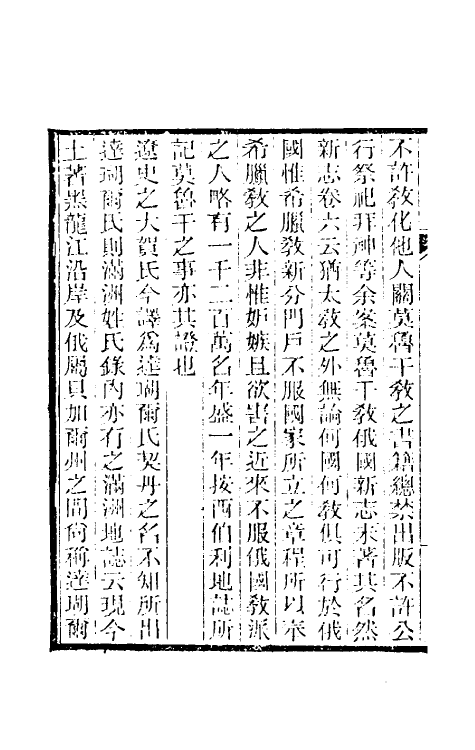 不許教化他人關莫魯干教之書籍總禁出版不許公
行祭祀拜神等余案莫魯干教俄國新志未著其名然
新志卷六云猶太教之外無論何國何教俱可行於俄
國惟希臘教新分門戶不服國家所立之章程所以奉
希臘教之人非惟妒嫉且欲害之近來不服俄國教派
之人略有一千二百萬名年盛一年按西伯利地誌所
記莫魯干之事亦其證也
遼史之大賀氏今譯爲達瑚爾氏契丹之名不知所出
達瑚爾氏則滿洲姓氏錄內亦有之滿洲地誌云現今
土著黑龍江沿岸及俄屬貝加爾州之間尙稱達瑚爾